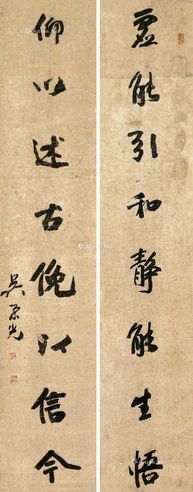 虚能引和静能生悟
仰以述古俛以信今
吴荣光